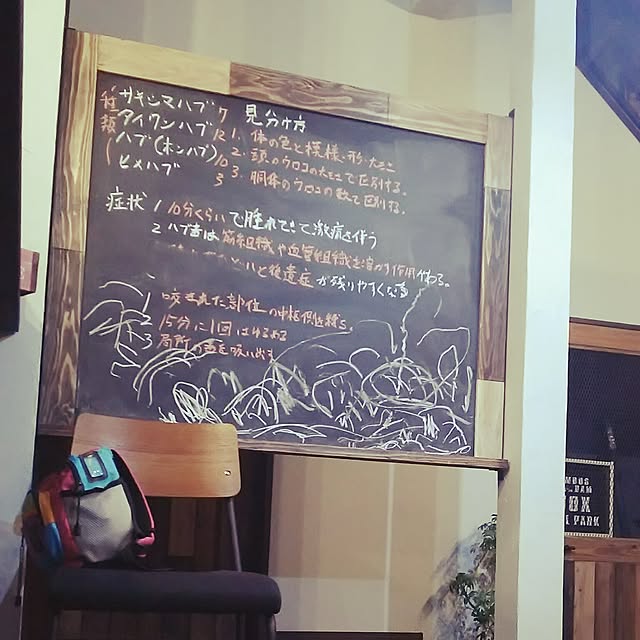 種類
サキシマハブ 7
アイワンハブ 12
ハブ(ホンハブ) 10
ヒメハブ 3
見分け方
1. 体の色と模様、形、大きさ
2. 頭のウロコの大きさで区別する。
3. 胴体のウロコの数で区別する。
症状
1 10分くらいで腫れてきて激痛を伴う
2 ハブ毒は筋組織や血管組織を溶かす作用がある。
と後遺症が残りやすくなる
1 咬まれた部位の中枢側を縛る。
2 15分に1回はゆるめる
3 局所の毒を吸い出す
PARK